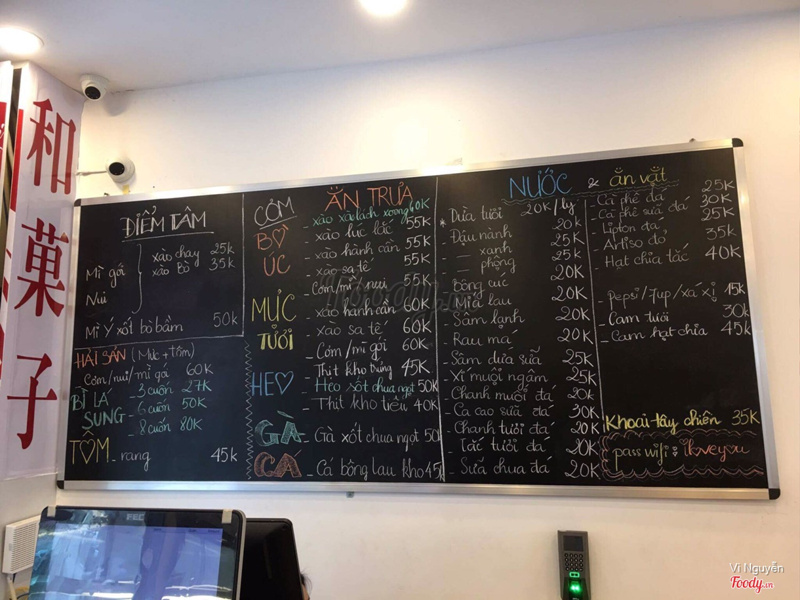 和菓子
ĐIỂM TÂM
Mì gói
Nui
xào chay 25k
xào Bò 35k
Mì Ý xốt bò bằm 50k
HẢI SẢN (Mực + tôm)
Cơm/nui/mì gói 60K
BÌ LÁ SUNG
- 3 cuốn 27K
- 6 cuốn 50K
- 8 cuốn 80K
TÔM - rang 45k
CƠM
ĂN TRƯA
BÒ ÚC
- xào xà lách xoong 60K
- xào lúc lắc 55K
- xào hành cần 55K
- xào sa tế 55K
- Cơm/mì/nui 55K
MỰC TƯƠI
- xào hành cần 60K
- xào sa tế 60K
- Cơm/mì gói 60K
HEO
- Thịt kho trứng 45K
- Heo xốt chua ngọt 50K
- Thịt kho tiêu 40K
GÀ - Gà xốt chua ngọt 50k
CÁ - Cá bông lau kho 45k
NƯỚC & ăn vặt
* Dừa tươi 20K/ly
- Đậu nành 20k
- xanh 25K
- phộng 25K
- Bông cúc 20K
- Mía lau 20K
- Sâm lạnh 20K
- Rau má 20K
- Sâm dứa sữa 25K
- Xí muội ngâm 25K
- Chanh muối đá 20K
- Ca cao sữa đá 30K
- Chanh tươi đá 20K
- Tắc tươi đá 20K
- Sữa chua đá 20K
- Cà phê đá 25K
- Cà phê sữa đá 30K
- Lipton đá 25K
- Artiso đỏ 35K
- Hạt chia tắc 40K
- Pepsi/7up/xá xị 15K
- Cam tươi 30k
- Cam hạt chia 45k
Khoai tây chiên 35K
pass wifi: iloveyou
Vi Nguyễn
Foody.vn